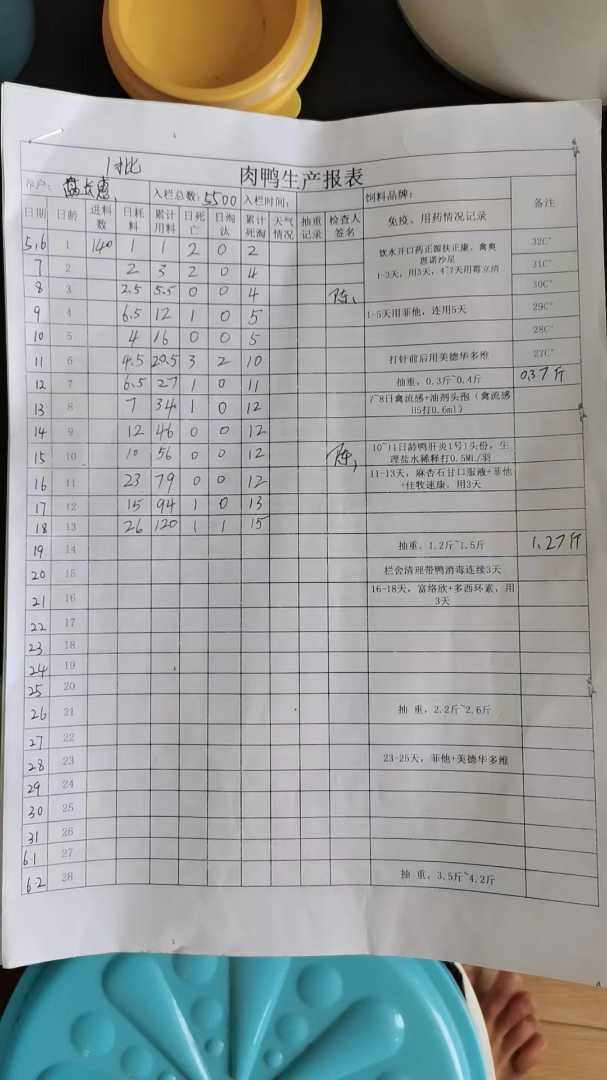 1批
肉鸭生产报表
养户： 入栏总数：5500 入栏时间： 饲料品牌： 备注
日期 日龄 进料数 日耗料 累计用料 日死亡 日淘汰 累计死淘 天气情况 抽重记录 检查人签名 免疫、用药情况记录
5.6 1 140 1 1 2 0 2 饮水开口药正源扶正康、禽奥 32C°
恩诺沙星
7 2 2 3 2 0 4 1-3天，用3天，4~7天用霉立清 31C°
8 3 2.5 5.5 0 0 4 陈 30C°
9 4 6.5 12 1 0 5 1-5天用菲他，连用5天 29C°
10 5 4 16 0 0 5 28C°
11 6 4.5 20.5 3 2 10 打针前后用美德华多维 27C°
12 7 6.5 27 1 0 11 抽重，0.3斤~0.4斤 0.37斤
13 8 7 34 1 0 12 7~8日禽流感+油剂头孢（禽流感
H5打0.6ml）
14 9 12 46 0 0 12
15 10 10 56 0 0 12 陈 10~11日龄鸭肝炎1号1头份，生
理盐水稀释打0.5ML/羽
16 11 23 79 0 0 12 11-13天，麻杏石甘口服液+菲他
+佳牧速康，用3天
17 12 15 94 1 0 13
18 13 26 120 1 1 15
19 14 抽重，1.2斤~1.5斤 1.27斤
20 15 栏舍清理带鸭消毒连续3天
21 16 16-18天，富络欣+多西环素，用
3天
22 17
23 18
24 19
25 20
26 21 抽 重，2.2斤~2.6斤
27 22
28 23 23-25天，菲他+美德华多维
29 24
30 25
31 26
6.1 27
6.2 28 抽 重，3.5斤~4.2斤